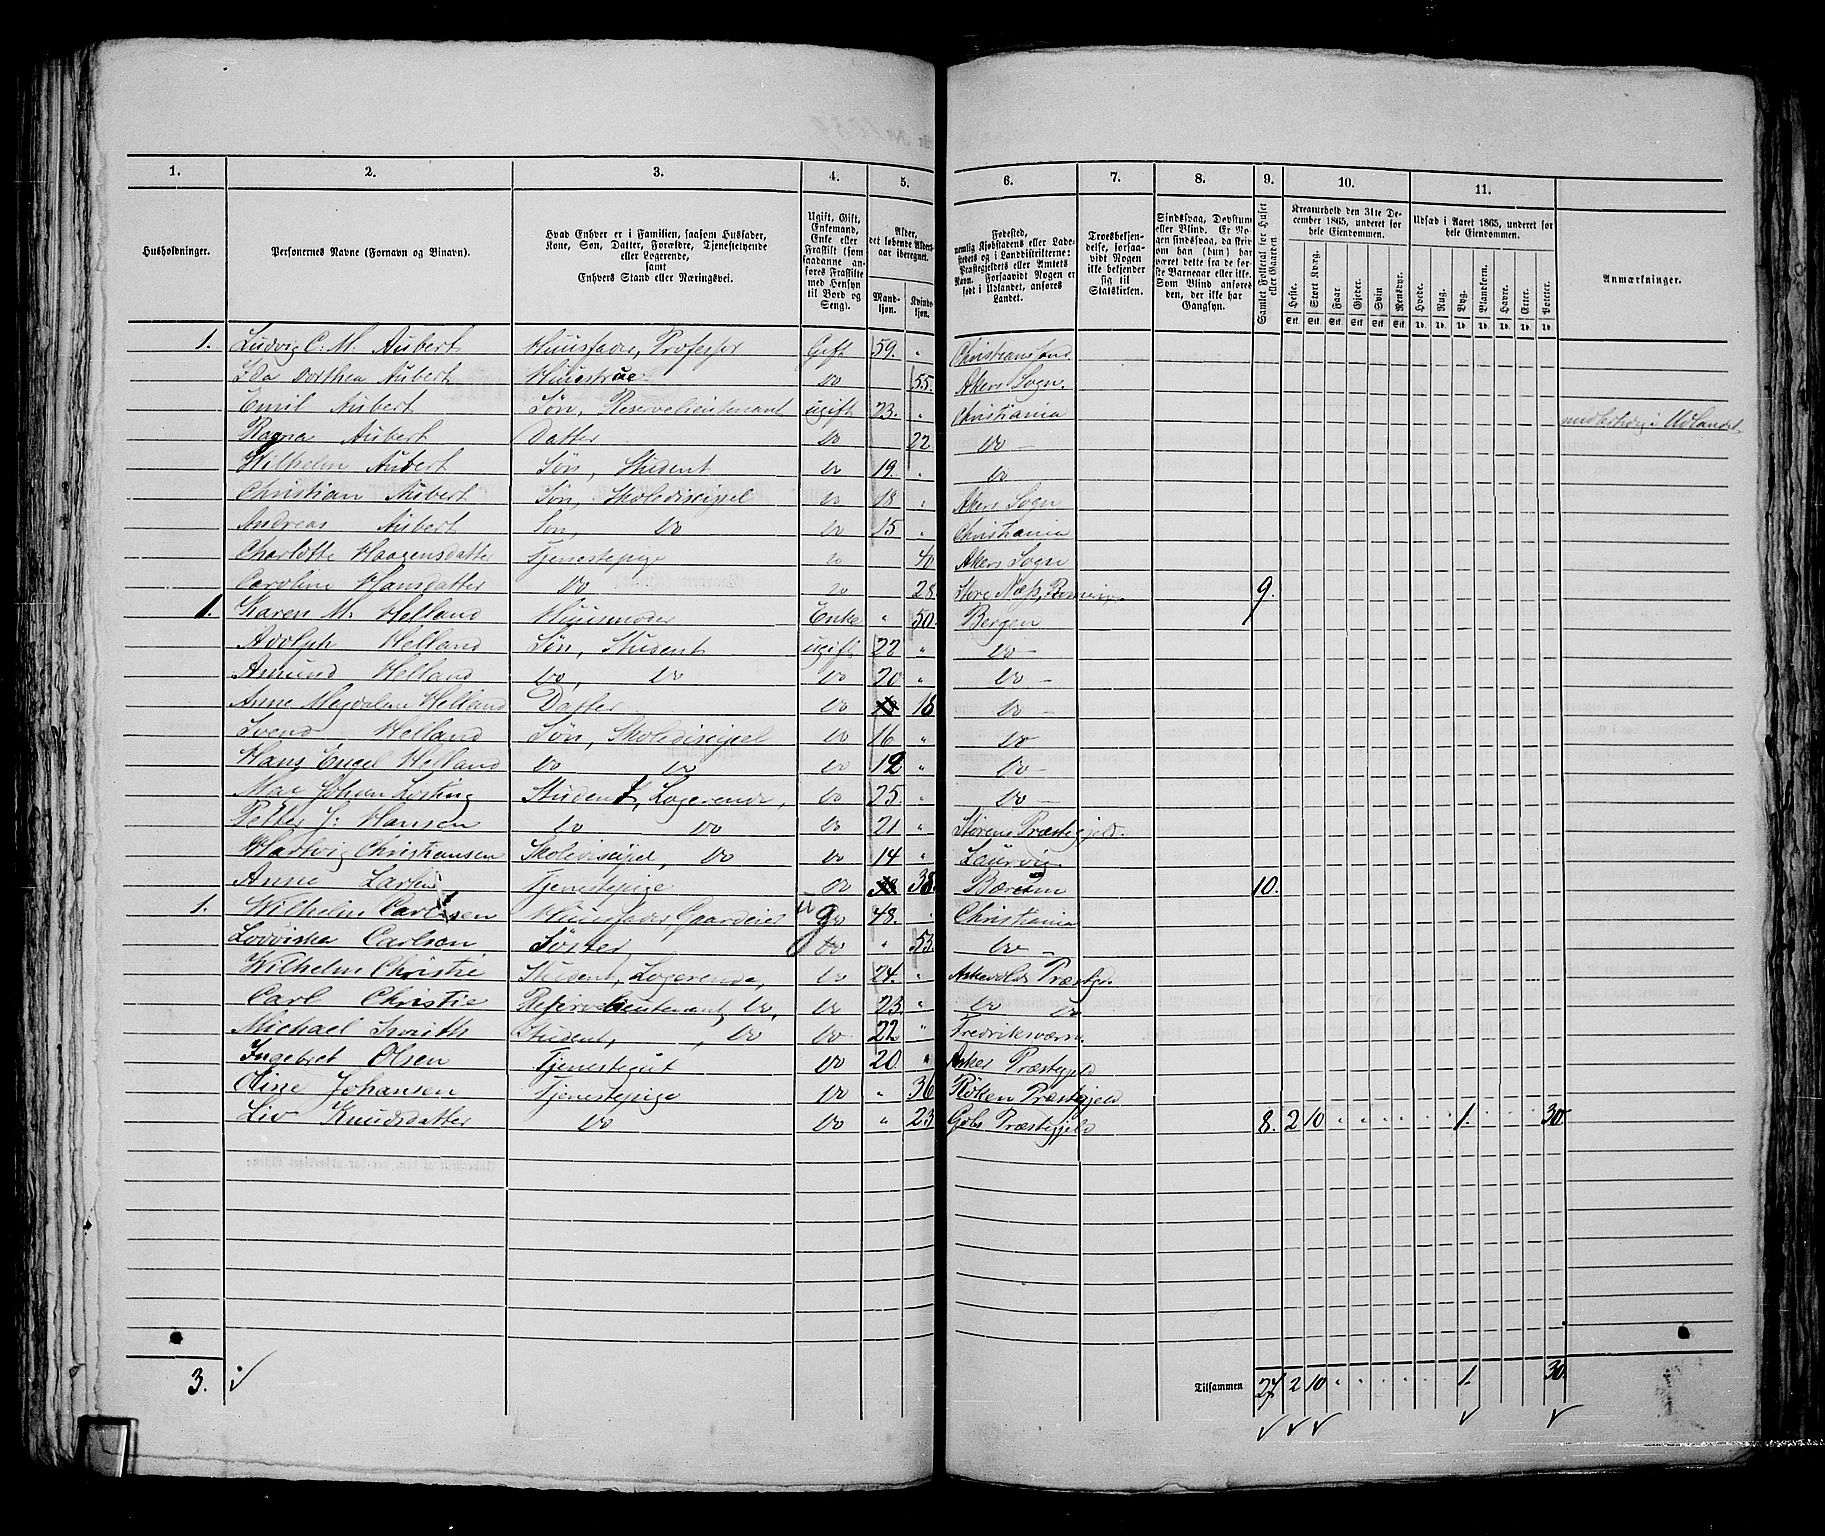 1. 2. 3. 4. 5. 6. 7. 8. 9. 10. 11.
Husholdninger.
Personernes Navne (Fornavn og Binavn).
Hvad Enhver er i Familien, saasom Husfader,
Kone, Søn, Datter, Forældre, Tjenestetyende
eller Logerende,
samt
Enhvers Stand eller Næringsvei.
Ugift, Gift,
Enkemand,
Enke eller
Fraskilt (som
saadanne an-
føres Fraskilte
med Hensyn
til Bord og
Seng).
Alder,
det løbende Alders-
aar iberegnet.
Mand-
kjøn.
Kvinde-
kjøn.
Fødested,
nemlig Kjøbstadens eller Lade-
stedets og i Landdistrikterne:
Præstegjeldets eller Amtets
Navn. Forsaavidt Nogen er
født i Udlandet, anføres
Landet.
Troesbekjen-
delse, forsaa-
vidt Nogen
ikke bekjender
sig til
Statskirken.
Sindssvag, Døvstum
eller Blind. Er No-
gen sindssvag, da skri-
ves om han (hun) har
været dette fra de før-
ste Barneaar eller ikke.
Som Blind anføres
den, der ikke har
Gangsyn.
Samlet Folketal for Huset
eller Gaarden
Kreaturhold den 31te De-
cember 1865, underet for
hele Eiendommen.
Heste. Stort Kvæg. Faar. Gjeder. Svin Rensdyr.
Stk. Stk. Stk. Stk. Stk. Stk.
Udsæd i Aaret 1865, underet for
hele Eiendommen.
Hvede. Rug. Byg. Blandkorn. Havre. Erter. Poteter.
Td. Td. Td. Td. Td. Td. Td.
Anmærkninger.
1. Ludvig C. M. Aubert Huusfader, Professor Gift 59. " Christianssand
Ida Dorthea Aubert Huustrue do 55. Akers Sogn.
Emil Aubert Søn, Reservelieutenant ugift 23. " Christiania Udlandet
Ragna Aubert Datter do 22 do —
Wilhelm Aubert Søn, Student do 19. " do
Christian Aubert Søn, Skolediscipel do 18 " Akers Sogn
Andreas Aubert Søn, do do 15 " Christiania
Charlotte Haagensdatter Tjenestepige do 40 Akers Sogn
Caroline Hansdatter do do 28. Store Næs, 9.
1. Karen M. Helland Huusmoder Enke " 50. Bergen
Adolph Helland Søn, Student ugift 22 " do —
Amund Helland do, do do 20 " do —
Anne Magdalene Helland Datter do 18 do —
Svend Helland Søn, Skolediscipel do 16 " do
Hans Engel Helland do do do 12 " do —
Max Johan Student, Logerende, do 25. " do —
Petter J: Hansen do do do 21 " Størens Præstegjeld.
Hartvig Christiansen Skolediscipel, do do 14 " Laurvig
Anne Larsen Tjenestepige do 38. Bærum 10.
1. Wilhelm Carlsen Huusfader, Gaardeier ug do 48. " Christiania
Lovviska Carlsen Søster do " 53. do —
Wilhelm Christie Student, Logerende, do 24. " Askevolds Præstgj.
Carl Christie Reservelieutenant, do, do 23. " do do
Michael Smith Student, do do 22 " Fredriksværn.
Ingebret Olsen Tjenestegut do 20. " Asker Præstegjeld
Oline Johansen Tjenestepige do " 36 Røken Præstegjeld
Liv Knudsdatter do do " 23 Gols Præstegjeld 8. 2 10 " " " " 1. 30
3. Tilsammen 27 2 10 " " " " 1. 30